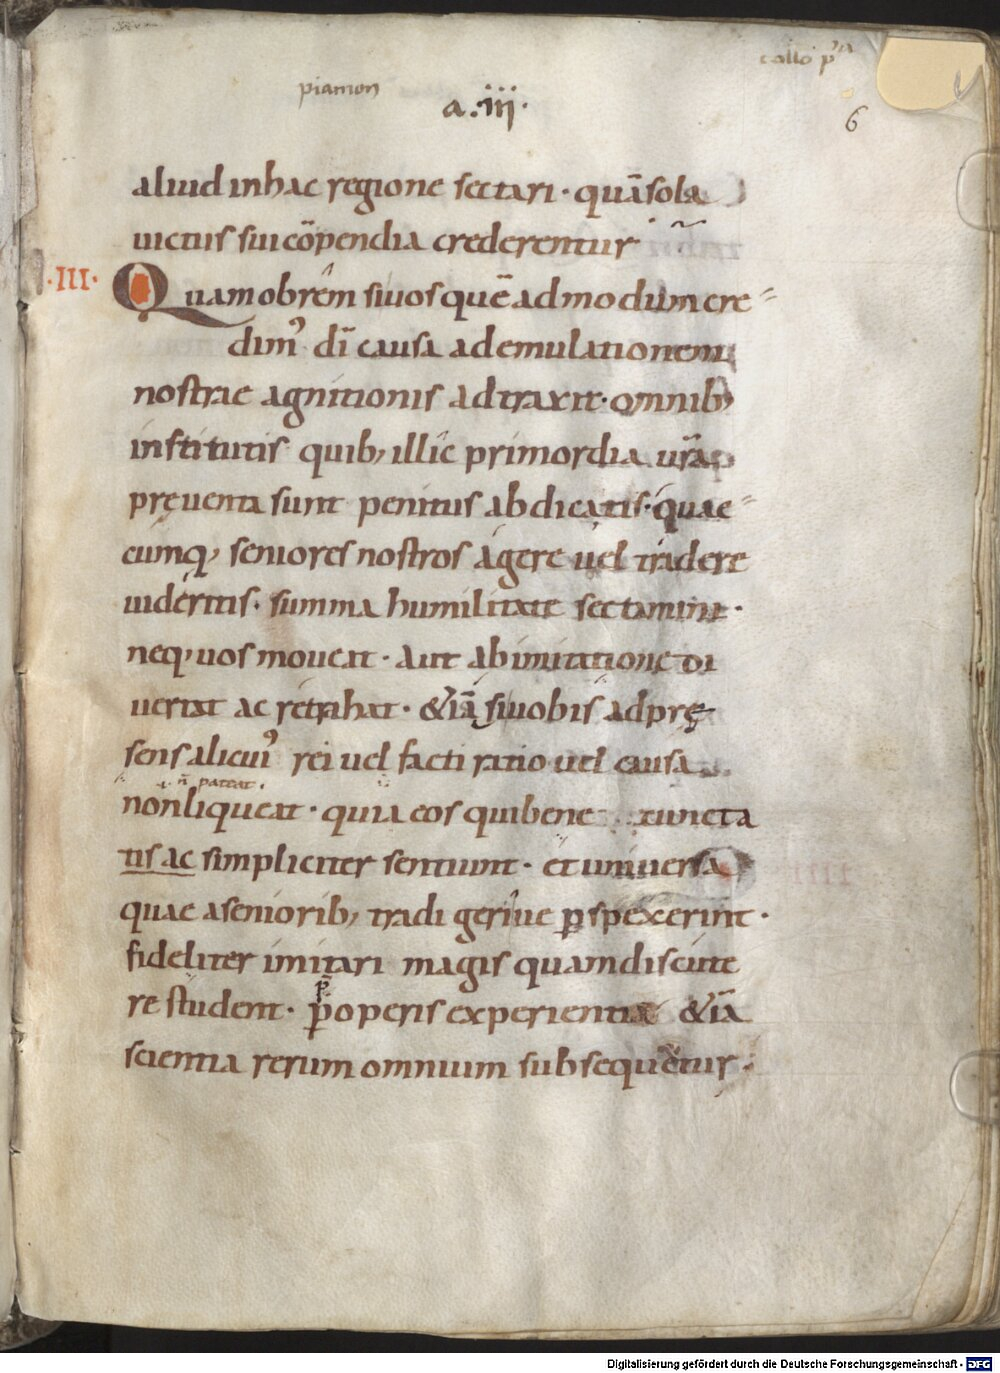 collo p
piamon
a.iii.
6
aliud inhac regione sectari· quāsola
uictus sui cōpendia crederentur
·III· Quamobrem si uos quēadmodum cre-
dim᾽ dī causa ademulationem
nostrae agnitionis adtraxit· omnib;
institutis quib; illic primordia ur̄a
pręuenta sunt penitus abdicatis· quae-
cumq; seniores nostros agere uel tradere
uideritis· summa humilitate sectamini·
neq; uos moueat· aut abimitatione di
uertat ac retrahat· &iā si uobis adprę
sens alicui᾽ rei uel facti ratio uel causa
·i· n̄ pateat·
nonliqueat· quia eos quibene cuncta
tis ac simpliciter sentiunt· et uniuersa
quae asenioribꝫ tradi geriue ꝑspexerint·
fideliter imitari magis quamdiscute
re student· ꝑoperis experientia &iā
scientia rerum omnium subsequetur·
Digitalisierung gefördert durch die Deutsche Forschungsgemeinschaft - DFG